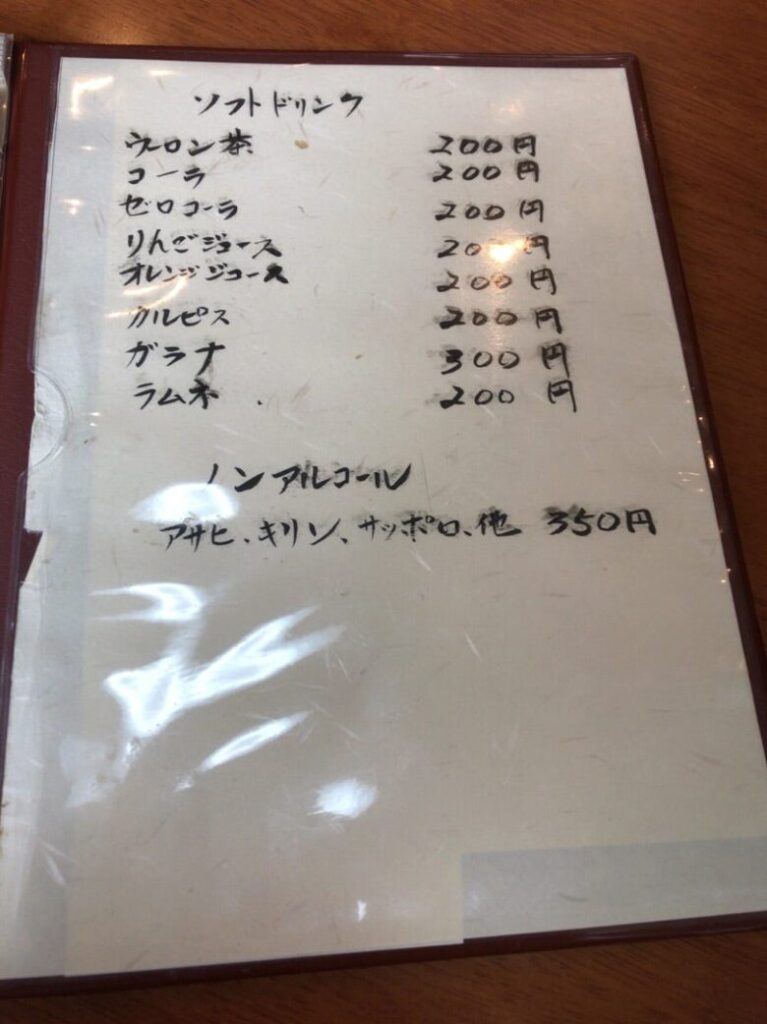 ソフトドリンク
ウーロン茶 200円
コーラ 200円
ゼロコーラ 200円
りんごジュース 200円
オレンジジュース 200円
カルピス 200円
ガラナ 300円
ラムネ 200円
ノンアルコール
アサヒ、キリン、サッポロ、他 350円